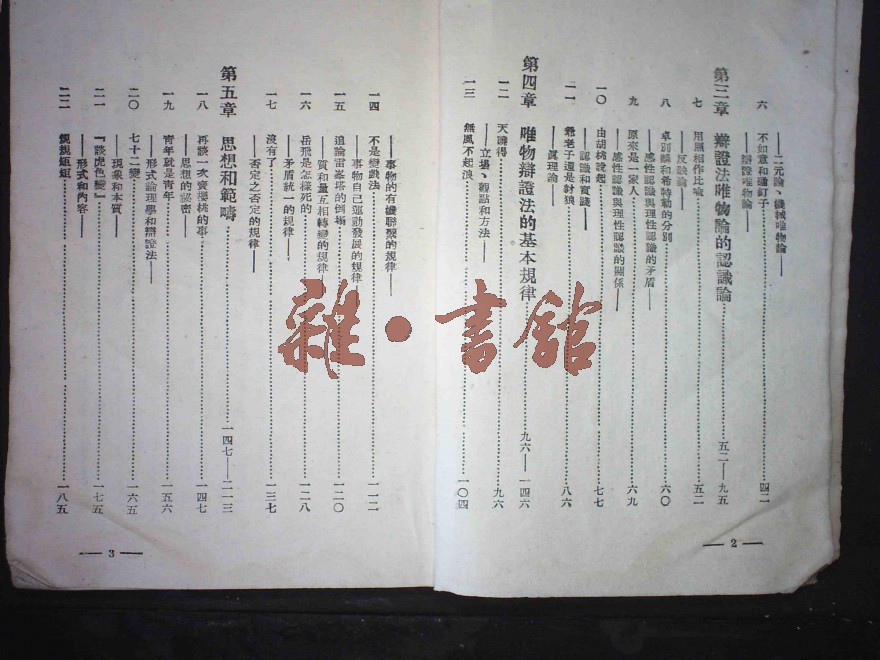 ——二元論、機械唯物論——
六 不如意和碰釘子……四二
——辯證唯物論——
第三章 辯證法唯物論的認識論……五二——九五
七 用照相作比喻……五二
——反映論——
八 卓別麟和希特勒的分別……六〇
——感性認識與理性認識的矛盾——
九 原來是一家人……六九
——感性認識與理性認識的關係——
一〇 由胡桃說起……七七
——認識和實踐——
一一 爺老子還是豺狼……八六
——真理論——
第四章 唯物辯證法的基本規律……九六——一四六
一二 天曉得……九六
——立場、觀點和方法——
一三 無風不起浪……一〇四
2
——事物的有機聯繫的規律——
一四 不是變戲法……一一二
——事物自己運動發展的規律——
一五 追論雷峯塔的倒塌……一二〇
——質和量互相轉變的規律——
一六 岳飛是怎樣死的……一二八
——矛盾統一的規律——
一七 沒有了……一三七
——否定之否定的規律——
第五章 思想和範疇……一四七——二一三
一八 再談一次賣櫻桃的事……一四七
——思想的祕密——
一九 青年就是青年……一五六
——形式論理學和辯證法——
二〇 七十二變……一六五
——現象和本質——
二一 『談虎色變』……一七五
——形式和內容——
二二 規規矩矩……一八五
3
雜·書館